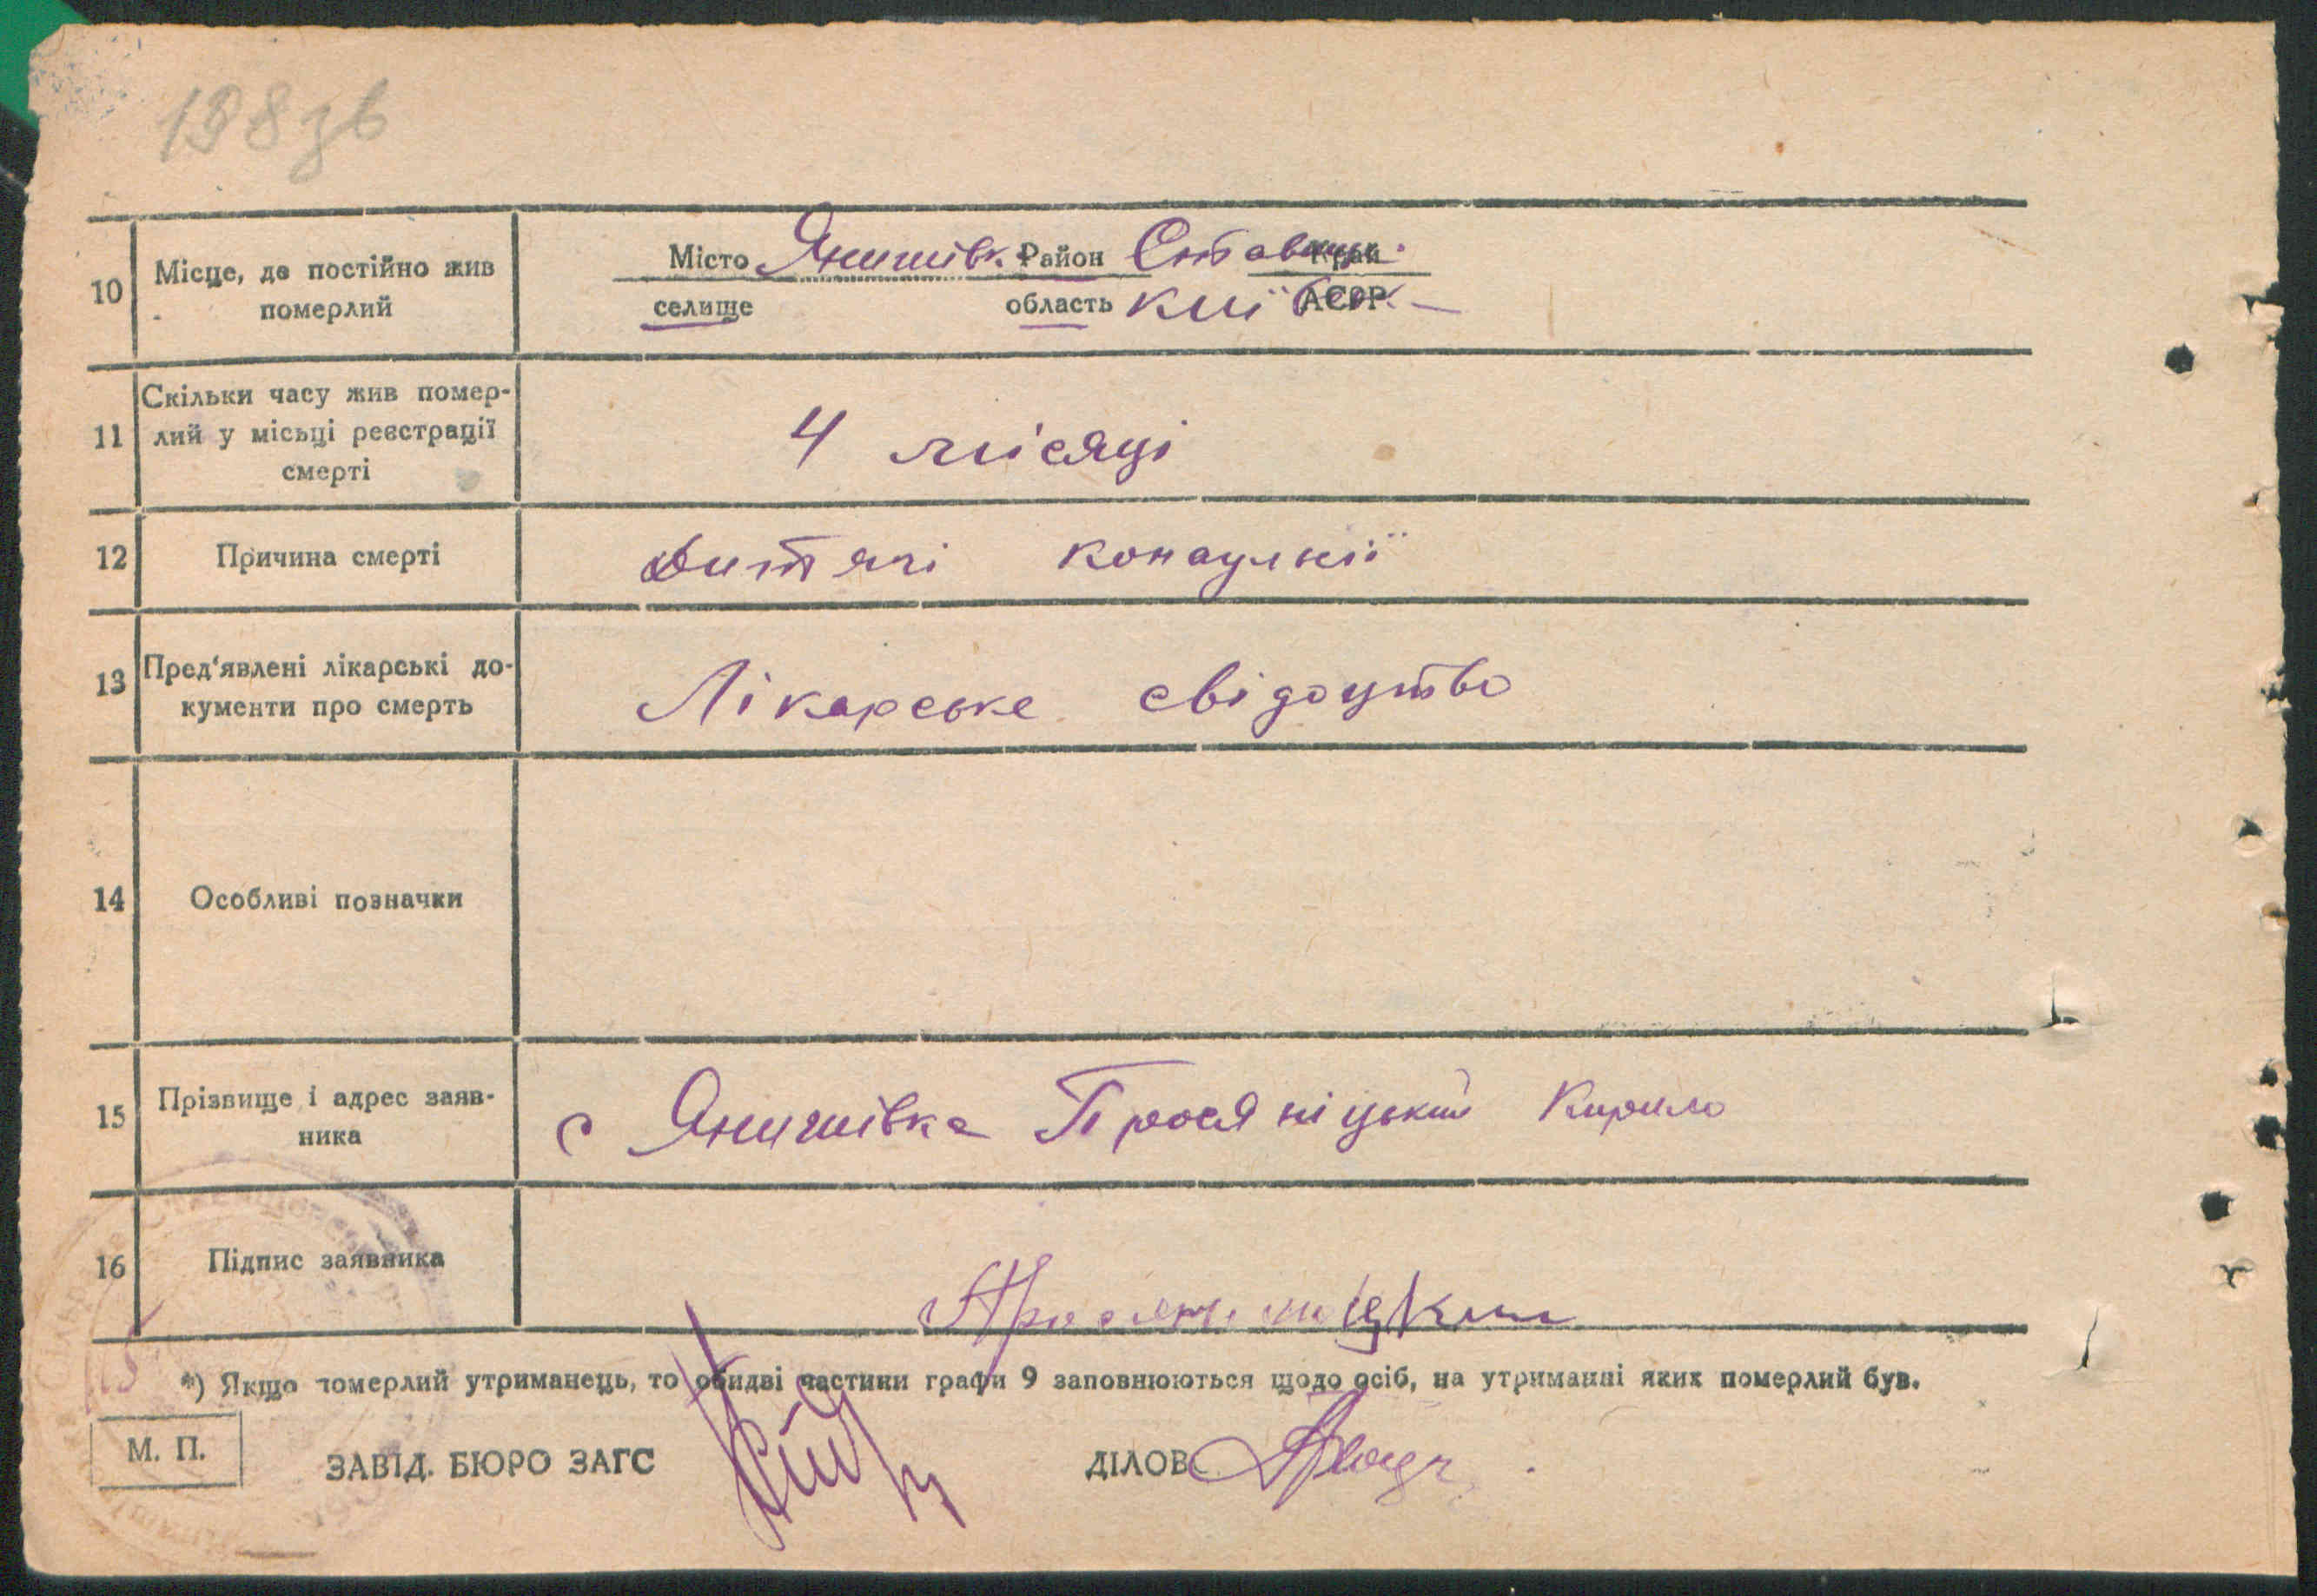 198зв
10 Місце, де постійно жив Місто Янишівк. Район Ставищ. Край
померлий селище область Київськ. АСРР
Скільки часу жив помер-
11 лий у місьці реєстрації 4 місяці
смерті
12 Причина смерті Дитячі конаулнсії
13 Пред'явлені лікарські до-
кументи про смерть Лікарське свідоцтво
14 Особливі позначки
15 Прізвище і адрес заяв- с Янишівка Просяніцький Кирило
ника
16 Підпис заявника
*) Якщо померлий утриманець, то обидві частини графи 9 заповнюються щодо осіб, на утриманні яких померлий був.
М. П. ЗАВІД. БЮРО ЗАГС ДІЛОВ.